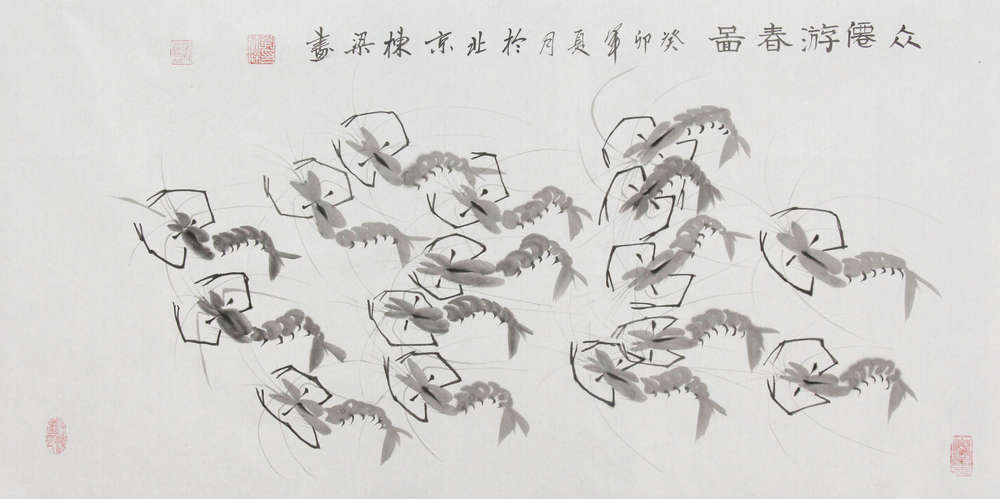 众僊游春啚 癸卯年夏月於北京棟梁畫